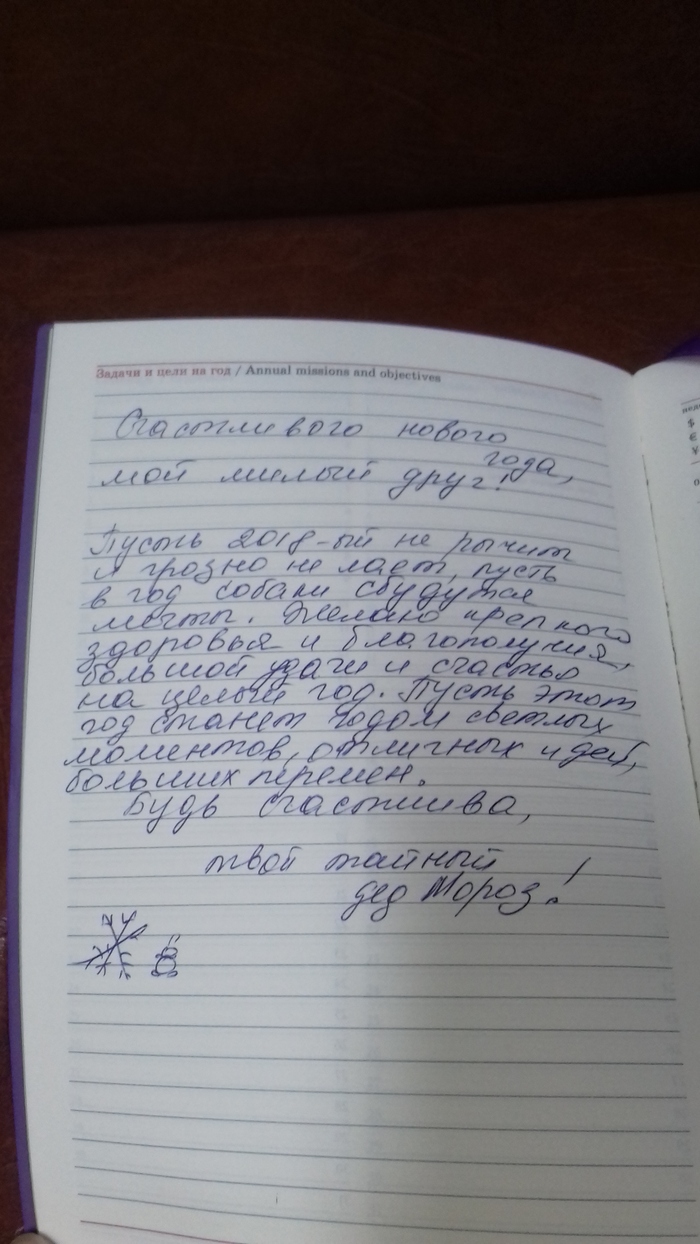 Задачи и цели на год / Annual missions and objectives
Счастливого нового
года,
мой милый друг!
Пусть 2018-ый не рычит
и грозно не лает, пусть
в год собаки сбудутся
мечты. Желаю крепкого
здоровья и благополучия,
большой удачи и счастья
на целый год. Пусть этот
год станет годом светлых
моментов, отличных идей,
больших перемен.
Будь счастлива,
твой тайный
дед Мороз!
$
€
¥